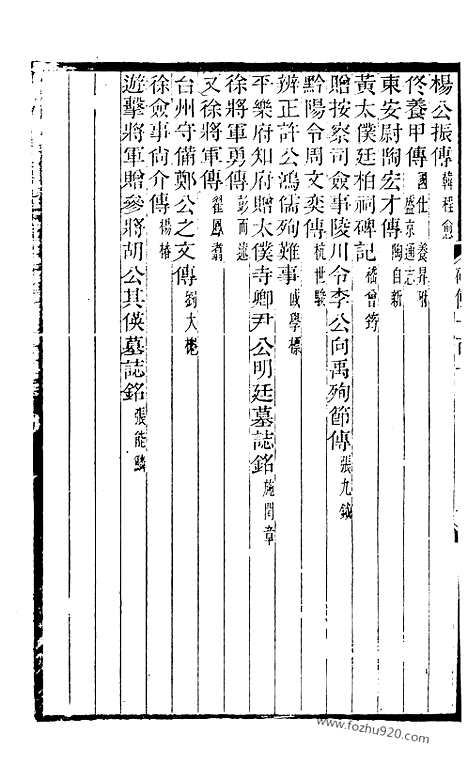 楊公振傳 韓程愈
佟養甲傳 國仕 養昇附 盛京通志
東安尉陶宏才傳 陶自新
黃太僕廷柏祠碑記 儲曾
贈按察司僉事陵川令李公向禹殉節傳 張九鉞
黔陽令周文奕傳 杭世駿
辨正許公鴻儒殉難事 戚學標
平樂府知府贈太僕寺卿尹公明廷墓誌銘 施閏章
徐將軍勇傳 彭而述
又徐將軍傳 翟鳳翥
台州守備鄭公之文傳 劉大櫆
徐僉事尙介傳 楊椿
遊擊將軍贈參將胡公其偀墓誌銘 張能鱗
www.fozhu920.com